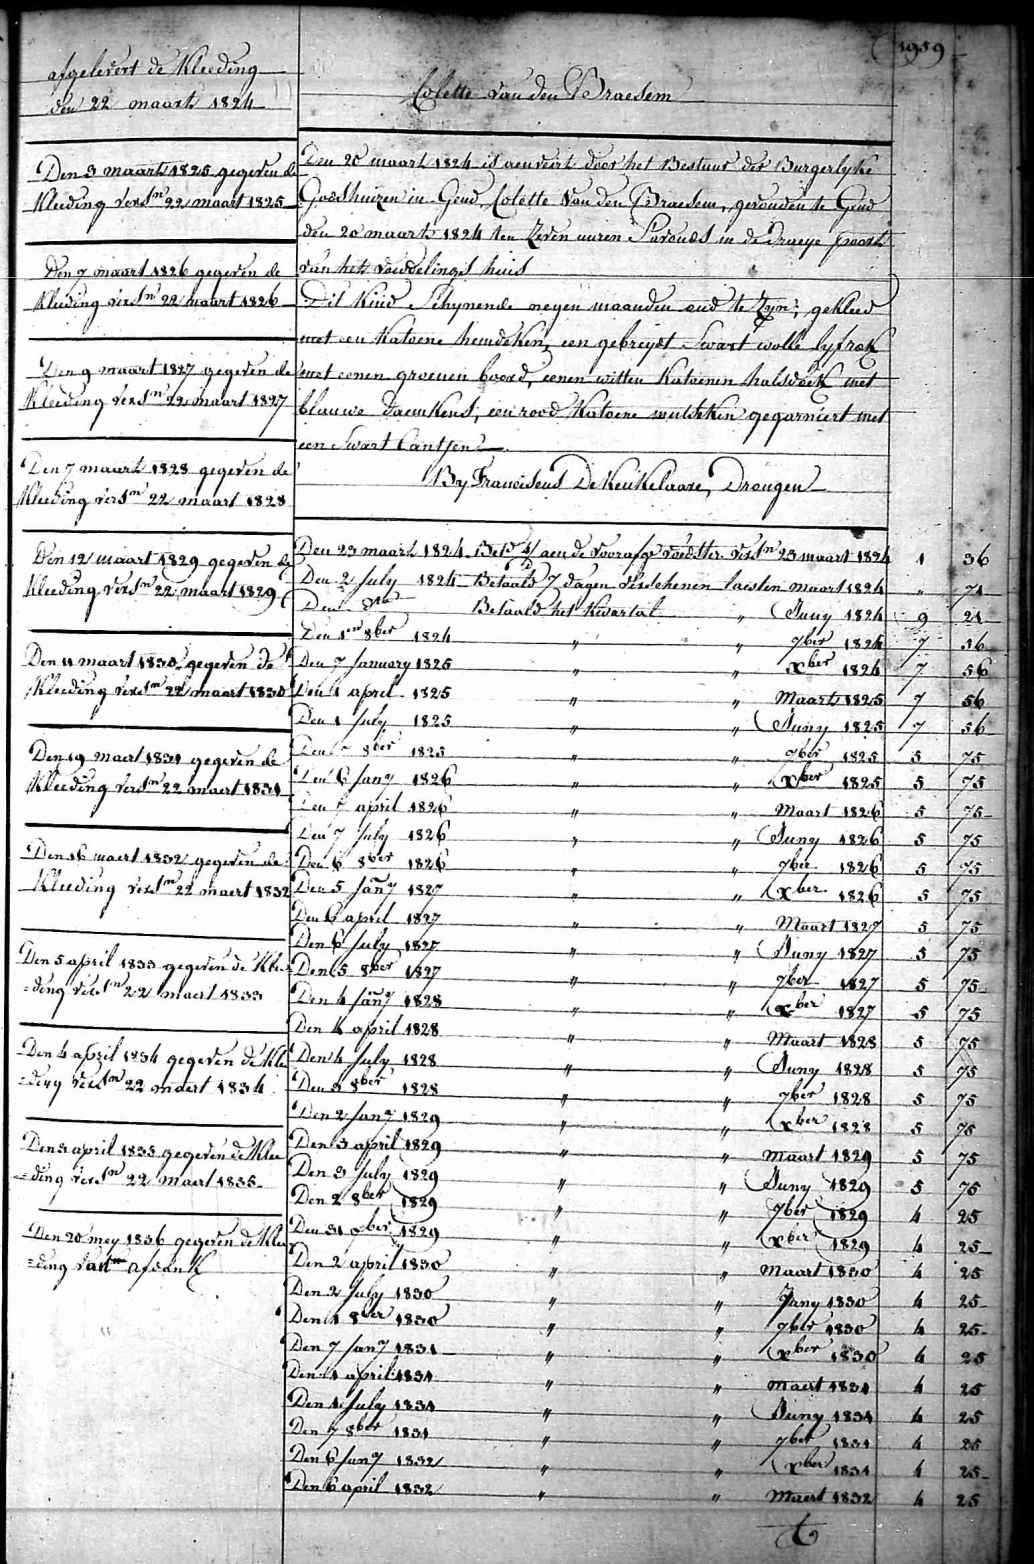 1959
afgelevert de Kleeding
den 22 maart 1824
Colette van den Braesem
Den 3 maart 1825 gegeven de
Kleeding versn 22 maart 1825
Den 7 maart 1826 gegeven de
Kleeding versn 22 maart 1826
Den 9 maart 1827 gegeven de
Kleeding versn 22 maart 1827
Den 7 maart 1828 gegeven de
Kleeding versn 22 maart 1828
Den 12 maart 1829 gegeven de
Kleeding versn 22 maart 1829
Den 11 maart 1830 gegeven de
Kleeding versn 22 maart 1830
Den 19 maert 1831 gegeven de
Kleeding versn 22 maert 1831
Den 16 maert 1832 gegeven de
Kleeding versn 22 maert 1832
Den 5 april 1833 gegeven de Klee
=ding versn 22 maert 1833
Den 4 april 1834 gegeven de Klee
=ding versn 22 maert 1834
Den 3 april 1835 gegeven de Klee
=ding versn 22 maert 1835
Den 20 mey 1836 gegeven de Klee
=ding
Den 20 maart 1824 is aenveirt door het Bestuur der Burgerlyke
Godshuizen in Gend, Colette Van den Braesem, gevonden te Gend
den 20 maart 1824 ten zeven uuren s'avonds in de Draeye poort
van het vondelings huis
Dit Kind Schynende negen maanden oud te zyn, gekleed
met een Katoene hemdeken, een gebreyd Swart wolle lyfrok
met eenen groenen boord, eenen witten Katoenen halsdoek met
blauwe daemkens, een rood Katoene mutseken gegarniert met
een Swart Cantjen
By Franciscus De Keukelaare, Drongen
Den 23 maart 1824 Betd 4/ aen de voorafge voedster versn 23 maart 1824 1 36
Den 2 July 1824 Betaald 7 dagen verschenen laesten maart 1824 " 71
Den dto Betaald het Kwartal " Juny 1824 9 21
Den 1en 8ber 1824 " " 7ber 1824 7 56
Den 7 January 1825 " " xber 1824 7 56
Den 1 april 1825 " " Maart 1825 7 56
Den 1 July 1825 " " Juny 1825 7 56
Den 7 8ber 1825 " " 7ber 1825 5 75
Den 6 Jany 1826 " " xber 1825 5 75
Den 7 april 1826 " " Maart 1826 5 75
Den 7 July 1826 " " Juny 1826 5 75
Den 6 8ber 1826 " " 7ber 1826 5 75
Den 5 Jany 1827 " " xber 1826 5 75
Den 6 april 1827 " " Maart 1827 5 75
Den 6 July 1827 " " Juny 1827 5 75
Den 5 8ber 1827 " " 7ber 1827 5 75
Den 4 Jany 1828 " " xber 1827 5 75
Den 4 april 1828 " " Maart 1828 5 75
Den 4 July 1828 " " Juny 1828 5 75
Den 3 8ber 1828 " " 7ber 1828 5 75
Den 2 Jany 1829 " " xber 1828 5 75
Den 3 april 1829 " " maart 1829 5 75
Den 3 July 1829 " " Juny 1829 5 75
Den 2 8ber 1829 " " 7ber 1829 4 25
Den 31 xber 1829 " " xber 1829 4 25
Den 2 april 1830 " " Maart 1830 4 25
Den 2 July 1830 " " Juny 1830 4 25
Den 1 8ber 1830 " " 7ber 1830 4 25
Den 7 Jany 1831 " " xber 1830 4 25
Den 1 april 1831 " " maert 1831 4 25
Den 1 July 1831 " " Juny 1831 4 25
Den 7 8ber 1831 " " 7ber 1831 4 25
Den 6 Jany 1832 " " xber 1831 4 25
Den 6 april 1832 " " Maert 1832 4 25